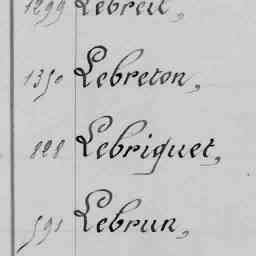 1299 Lebreil,
1350 Lebreton,
828 Lebriquet,
591 Lebrun,